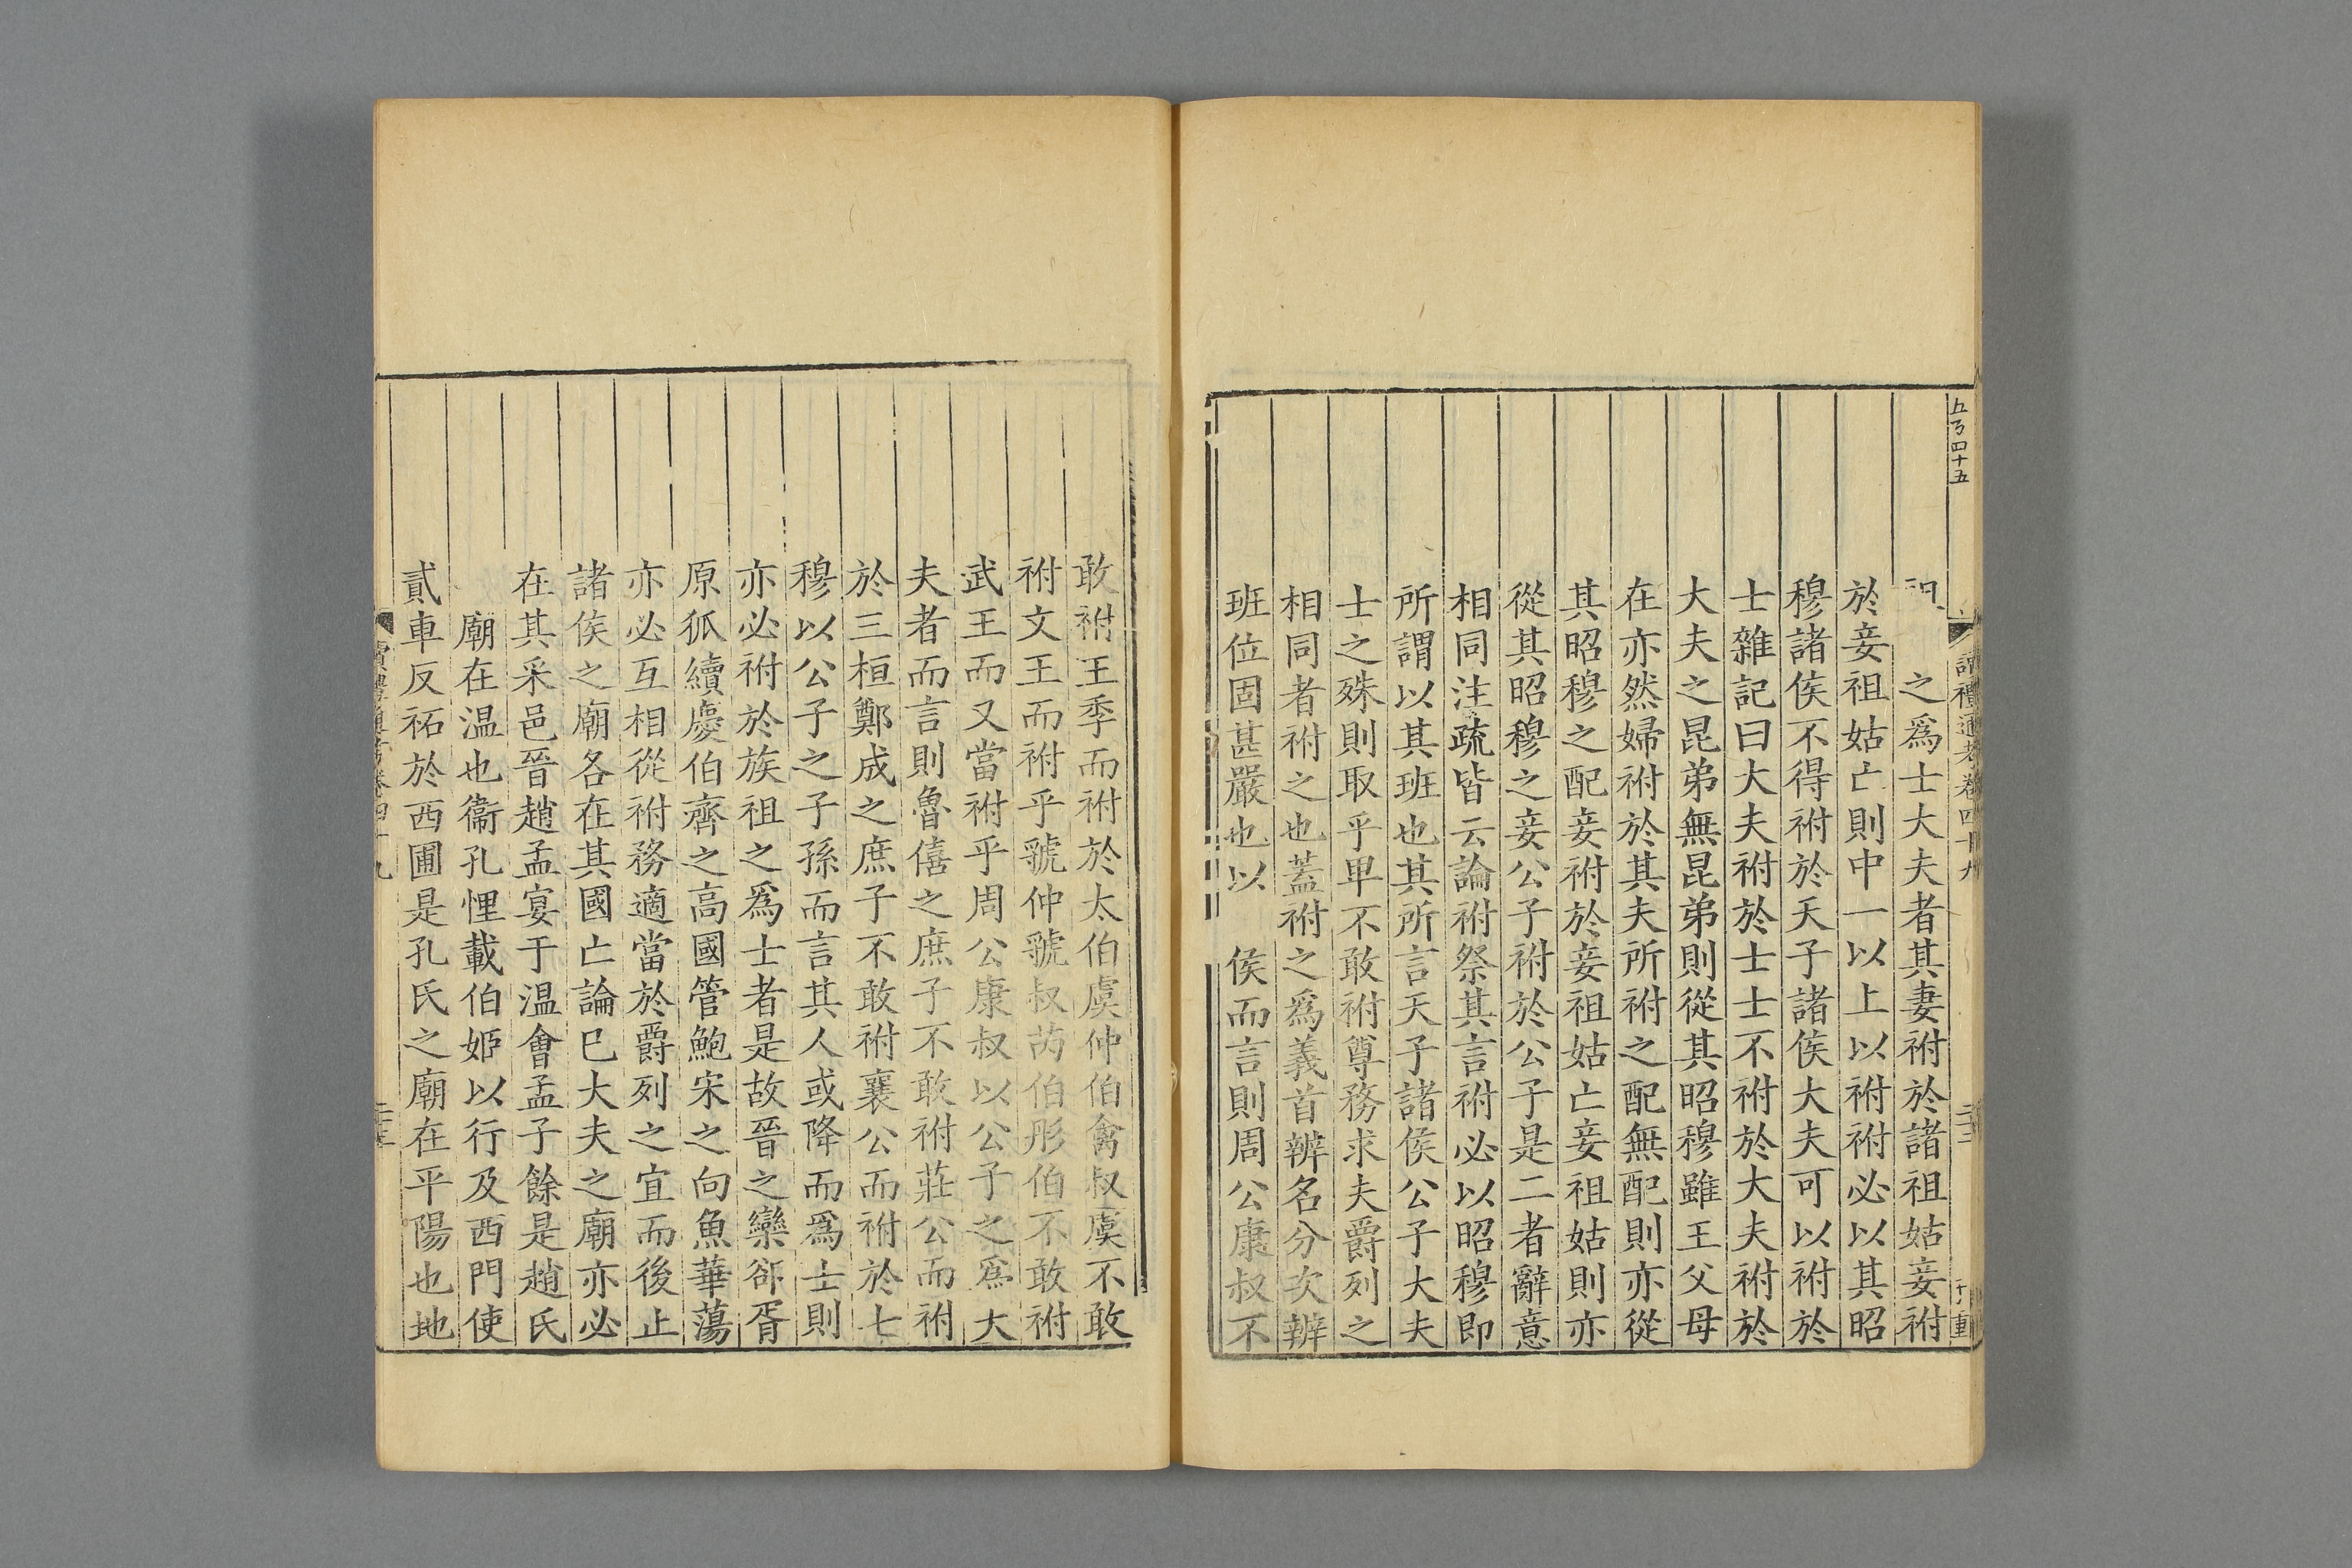 五百四十五
讀禮通考卷四十九
二十二
之爲士大夫者其妻祔於諸祖姑妾祔
於妾祖姑亡則中一以上以祔祔必以其昭
穆諸侯不得祔於天子諸侯大夫可以祔於
士雜記曰大夫祔於士士不祔於大夫祔於
大夫之昆弟無昆弟則從其昭穆雖王父母
在亦然婦祔於其夫所祔之配無配則亦從
其昭穆之配妾祔於妾祖姑亡妾祖姑則亦
從其昭穆之妾公子祔於公子是二者辭意
相同注疏皆云論祔祭其言祔必以昭穆即
所謂以其班也其所言天子諸侯公子大夫
士之殊則取乎卑不敢祔尊務求夫爵列之
相同者祔之也蓋祔之爲義首辨名分次辨
班位固甚嚴也以 侯而言則周公康叔不
敢祔王季而祔於太伯虞仲伯禽叔虞不敢
祔文王而祔乎虢仲虢叔芮伯彤伯不敢祔
武王而又當祔乎周公康叔以公子之爲大
夫者而言則魯僖之庶子不敢祔莊公而祔
於三桓鄭成之庶子不敢祔襄公而祔於七
穆以公子之子孫而言其人或降而爲士則
亦必祔於族祖之爲士者是故晉之欒郤胥
原狐續慶伯齊之高國管鮑宋之向魚華蕩
亦必互相從祔務適當於爵列之宜而後止
諸侯之廟各在其國亡論已大夫之廟亦必
在其采邑晉趙孟宴于溫會孟子餘是趙氏
廟在溫也衞孔悝載伯姬以行及西門使
貳車反祏於西圃是孔氏之廟在平陽也地
讀禮通考卷四十九
二十三